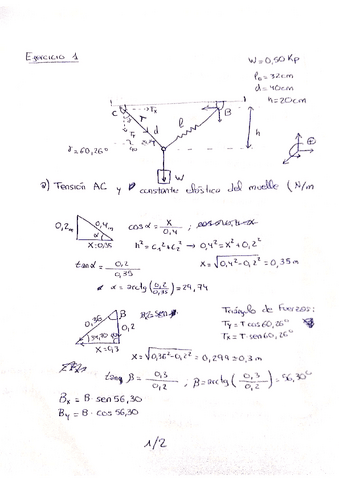 Ejercicio 1
W = 0,50 Kp
l₀ = 32cm
d = 40cm
h = 20cm
C
Tx
B
T
Ty
d
l
h
γ = 60,26°
A
W
a) Tensión AC y constante elástica del muelle (N/m
0,2m
0,4m
α
X = 0,35
cos α = x / 0,4
h² = c₁² + c₂² → 0,4² = x² + 0,2²
tan α = 0,2 / 0,35
x = √0,4² - 0,2² = 0,35 m
α = arctg (0,2 / 0,35) = 29,74
0,36
B
0,2
X = 0,3
Triángulo de Fuerzas:
Ty = T cos 60,26°
Tx = T · sen 60,26°
x = √0,36² - 0,2² = 0,299 ≈ 0,3 m
tang β = 0,3 / 0,2 ; β = arctg (0,3 / 0,2) = 56,30°
Bx = B · sen 56,30
By = B · cos 56,30
1/2